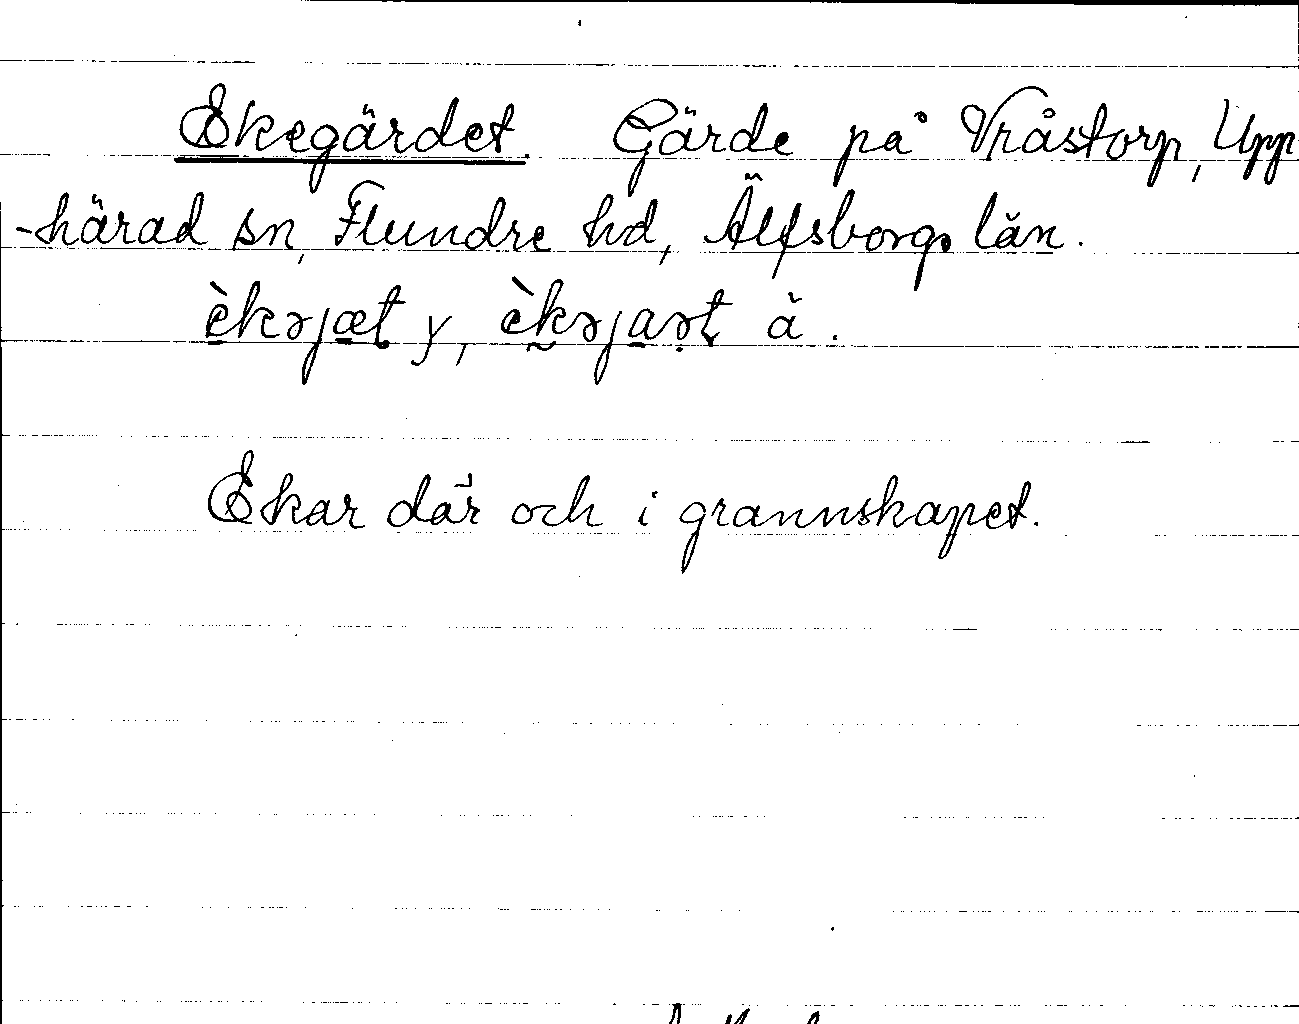 Ekegärdet. Gärde på Vråstorp, Upp
-härad sn, Flundre hd, Älfsborgs län.
èkəjæt y, èkəjaṛt ä.
Ekar där och i grannskapet.